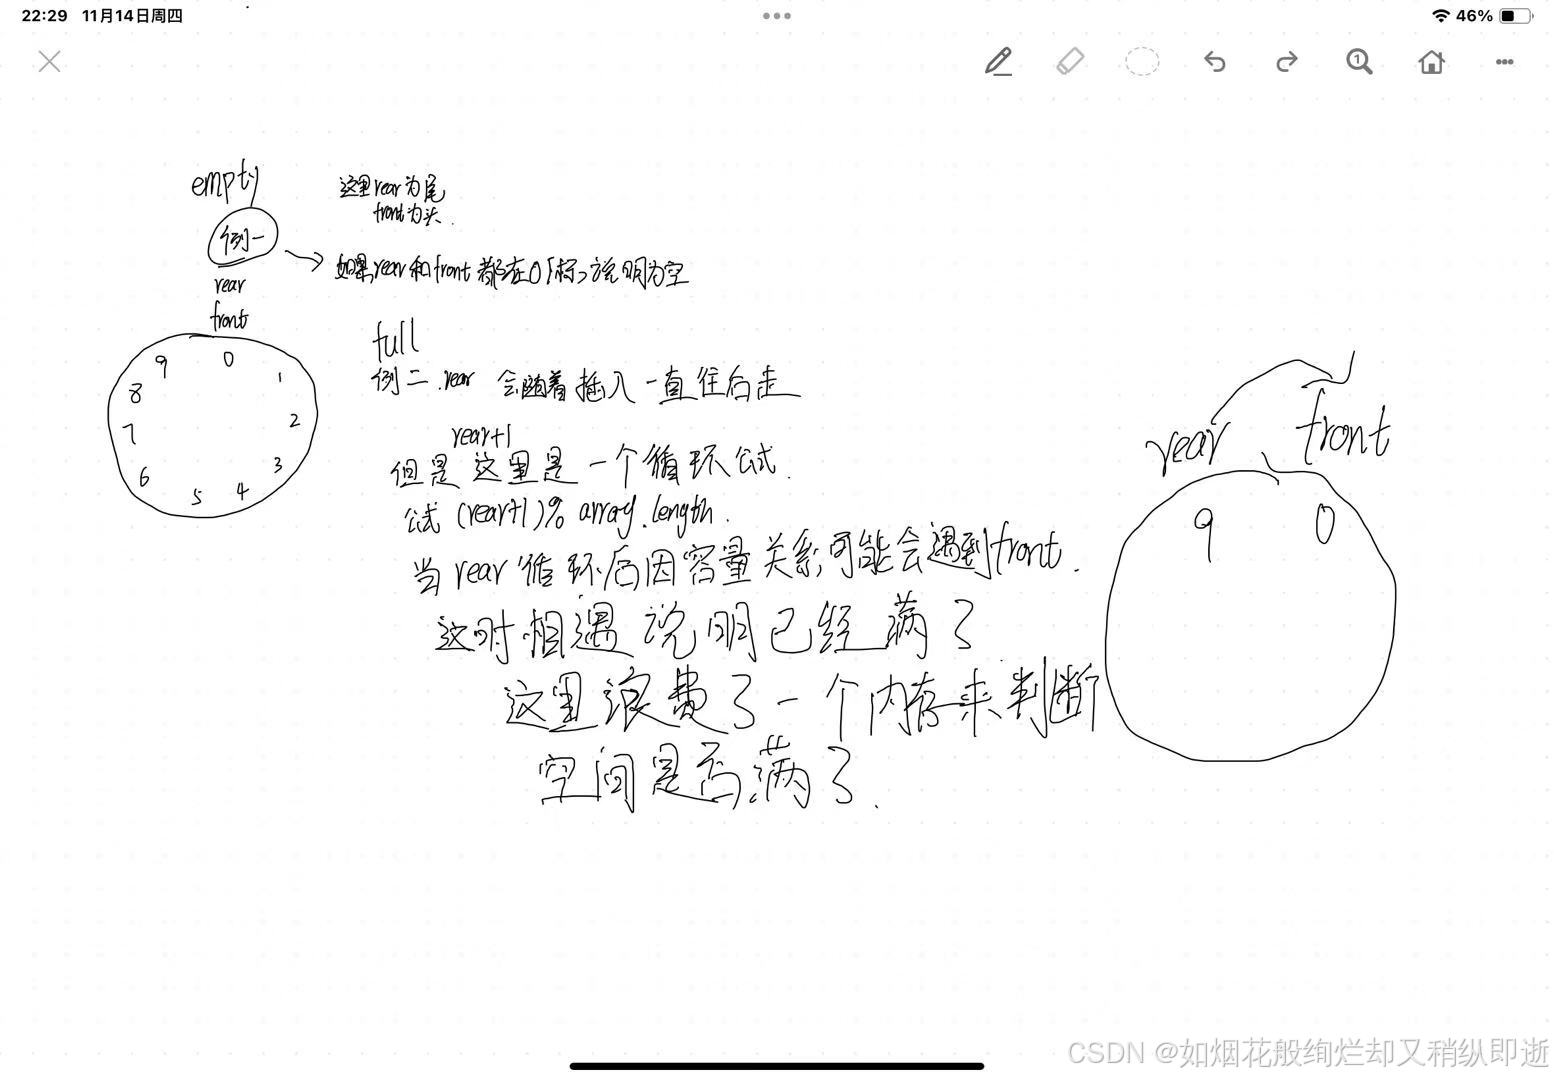 22:29 11月14日周四
46%
1
empty
例一
这里rear为尾
front为头.
如果rear和front都在0下标,说明为空
rear
front
0
1
2
3
4
5
6
7
8
9
full
例二.rear 会随着插入一直往后走
rear+1
但是这里是一个循环公式.
公式 (rear+1)% array.length.
当rear循环后因容量关系,可能会遇到front.
这时相遇说明已经满了
这里浪费了一个内存来判断
空间是否满了.
rear front
9 0
CSDN @如烟花般绚烂却又稍纵即逝